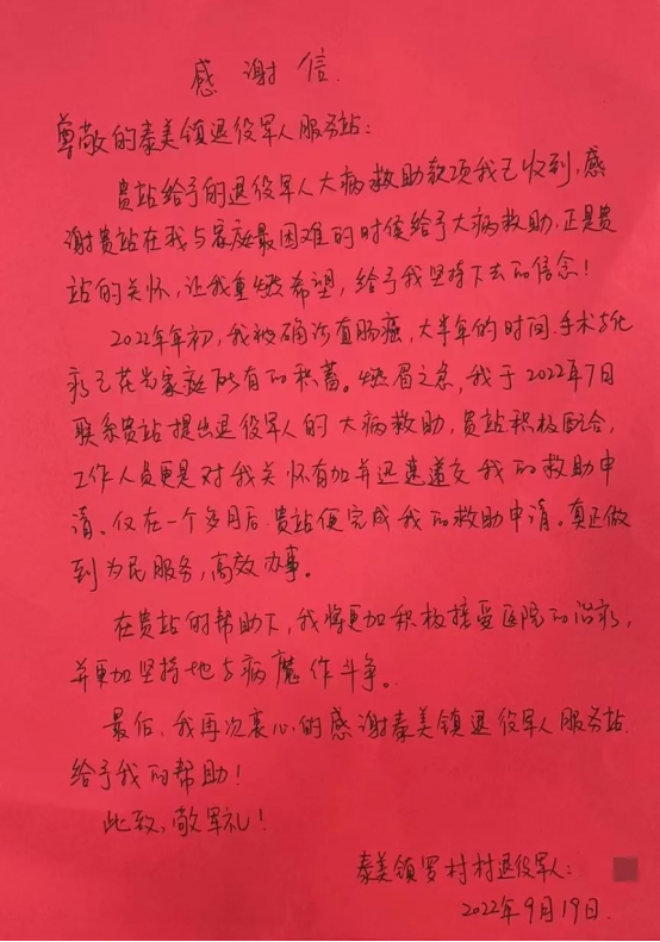 感谢信.
尊敬的泰美镇退役军人服务站：
贵站给予的退役军人大病救助款项我已收到，感
谢贵站在我与家庭最困难的时候给予大病救助，正是贵
站的关怀，让我重燃希望，给予我坚持下去的信念！
2022年年初，我被确诊直肠癌，大半年的时间.手术与化
疗已花光家庭所有的积蓄。燃眉之急，我于2022年7月
联系贵站提出退役军人的大病救助，贵站积极配合，
工作人员更是对我关怀有加并迅速递交我的救助申
请。仅在一个多月后.贵站便完成我的救助申请。真正做
到为民服务，高效办事。
在贵站的帮助下，我将更加积极接受医院的治疗，
并更加坚持地与病魔作斗争。
最后，我再次衷心的感谢泰美镇退役军人服务站
给予我的帮助！
此致，敬军礼！
泰美镇罗村村退役军人：
2022年9月19日.